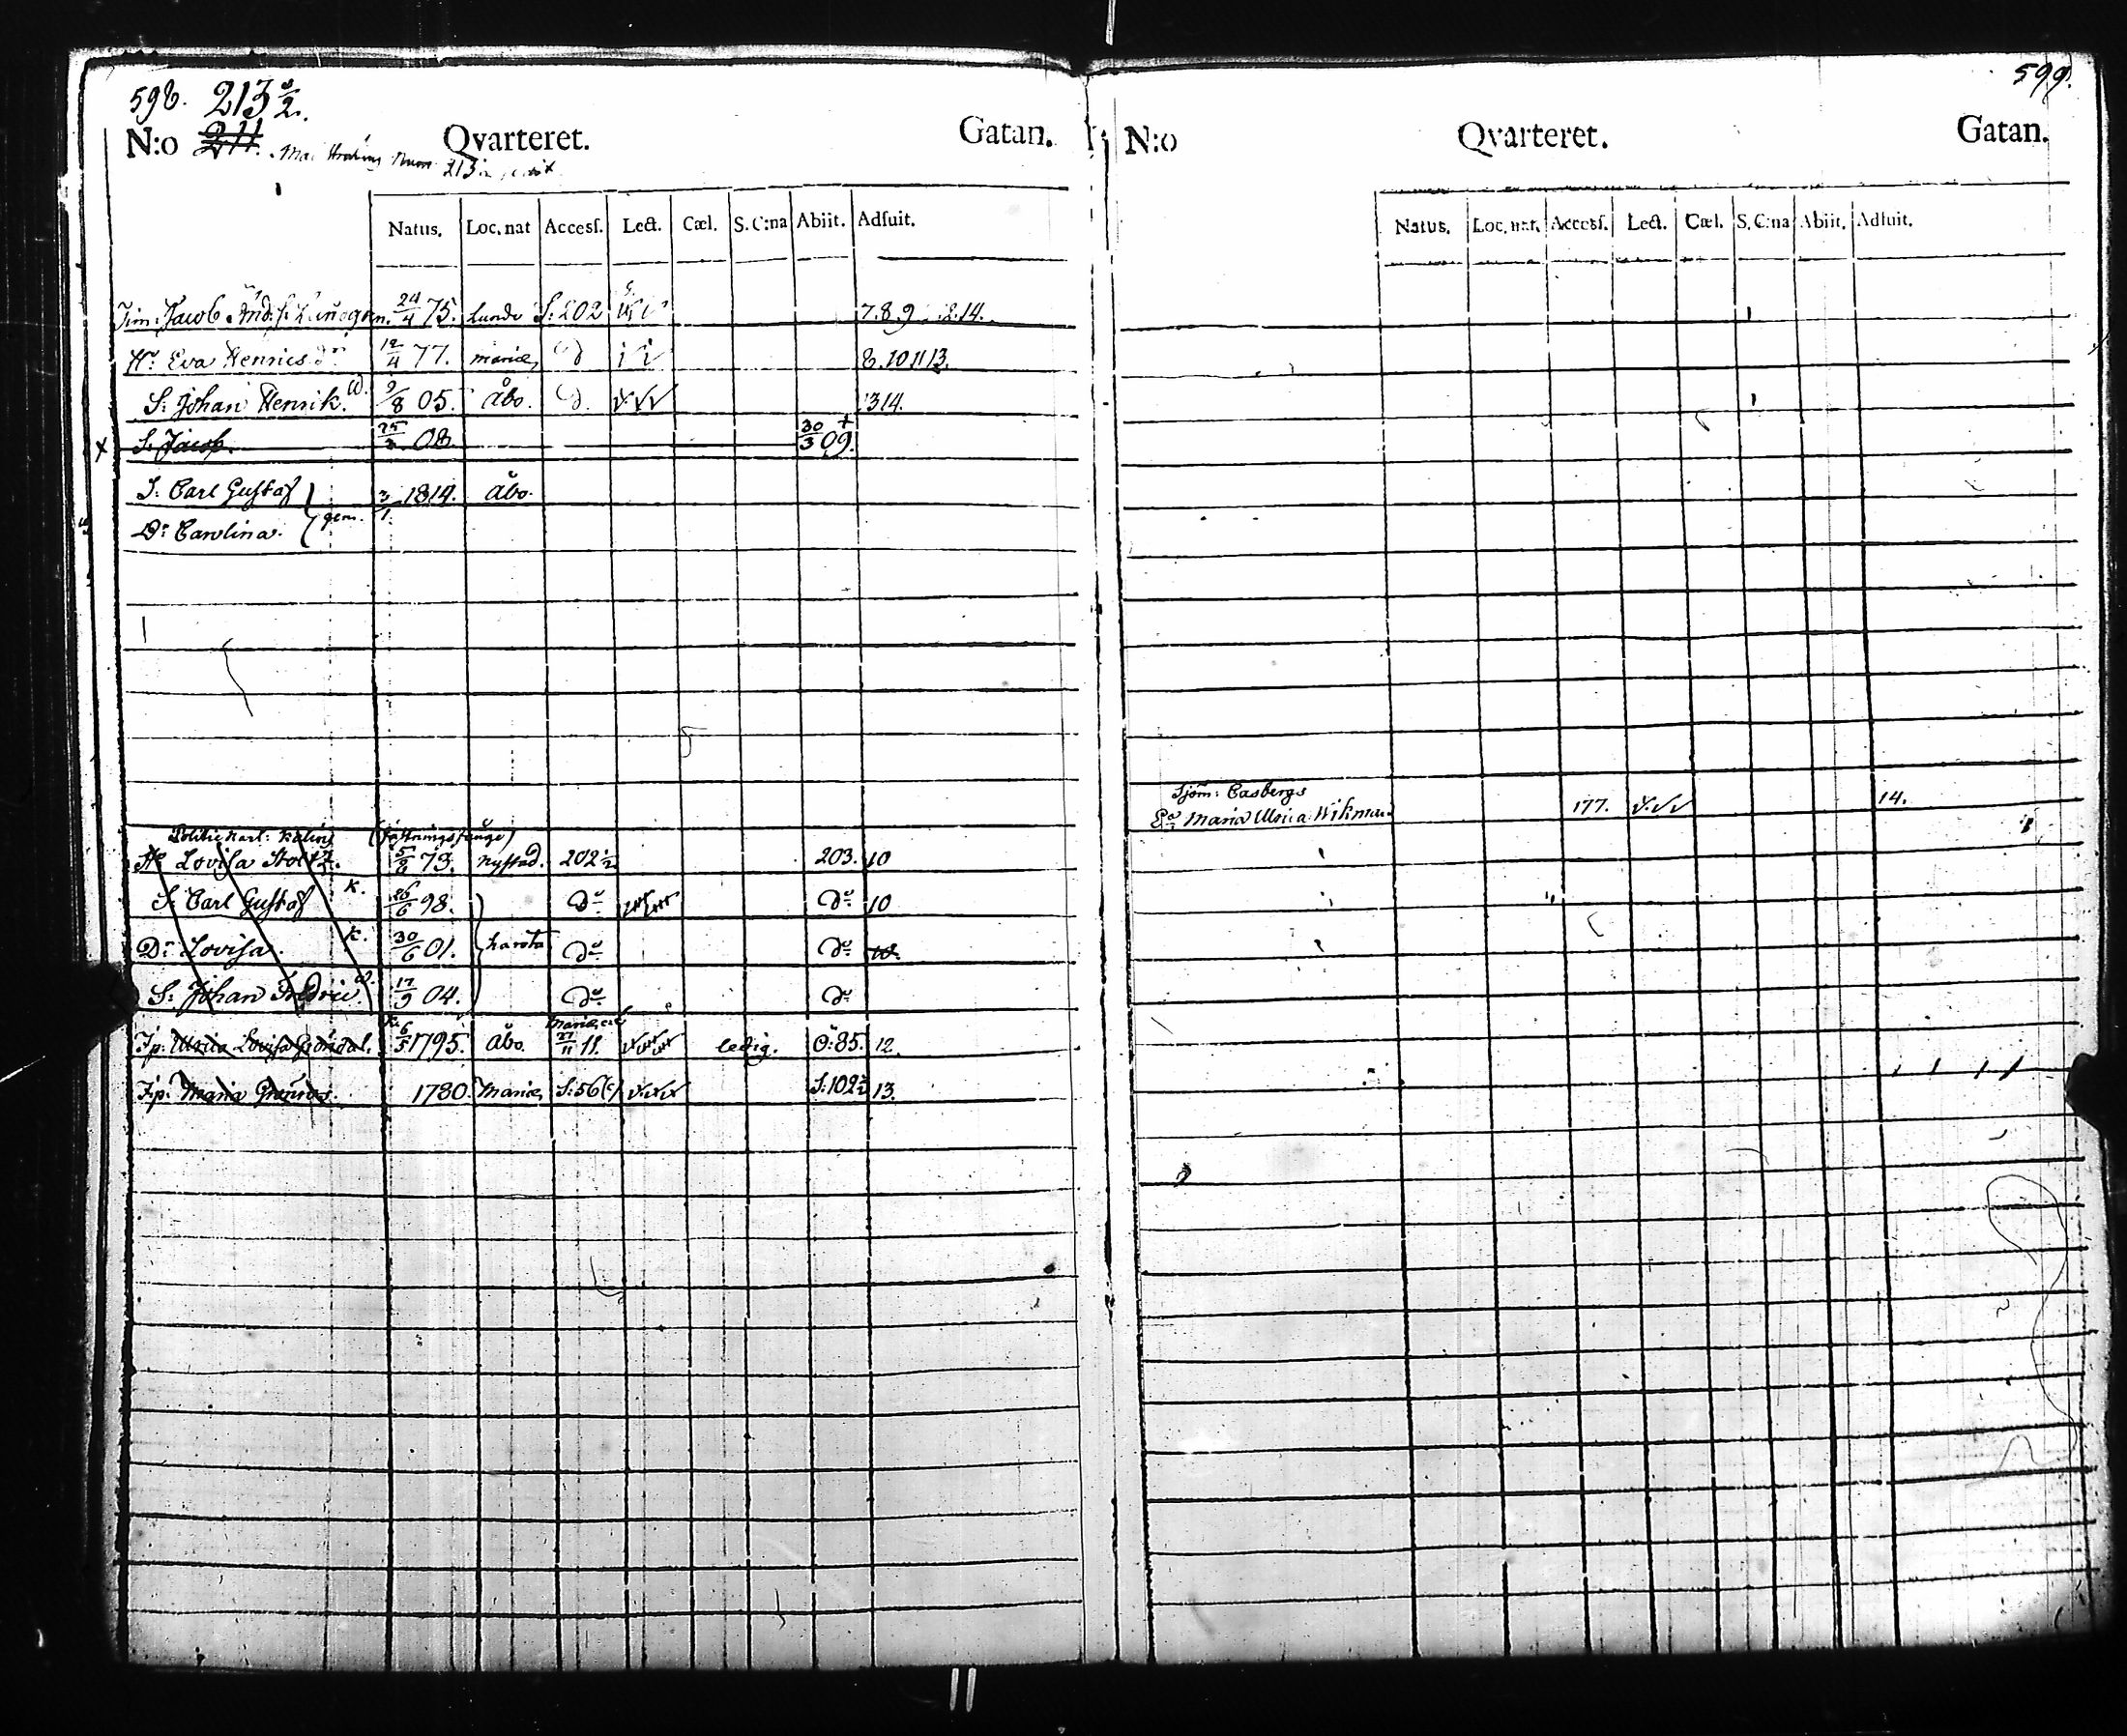 598. 213 a/2.
N:o 211. Qvarteret. Gatan.
213
Natus. Loc. nat Accesſ. Lect. Cæl. S. C:na Abiit. Adfuit.
Tim: Jacob And:s. 24/4 75. Lundo S: 202 7.8.9 12.14.
H:u Eva Henricsd:r 12/4 77. Mariæ D i i 8.10.11 13.
S: Johan Henrik. 9/8 05. Åbo. D. 13 14.
x S: Jacob. 25/3 08. 30/3 09. +
S: Carl Gustaf } gem. 3/1 1814. Åbo.
D:r Carolina.
Politie Karl: (fästningsfånge)
H:u Lovisa 5/8 73. Nystad. 202 1/2 203. 10
S: Carl Gustaf K. 26/6 98. D:o D:o 10
D:r Lovisa. K. 30/6 01. D:o D:o 10.
S: Johan Fredric 17/9 04. D:o D:o
Ip: Ulrica Lovisa Gröndal. 6/5 1795. Åbo. 27/11 11. ledig. Ö: 85. 12.
Ip: Maria 1780. Mariæ S: 56 S: 102 13.
599.
N:o Qvarteret. Gatan.
Natus. Loc. nat. Accesſ. Lect. Cæl. S. C:na Abiit. Adfuit.
Sjöm: Casbergs
Maria Ulrica Wikman 177. 14.